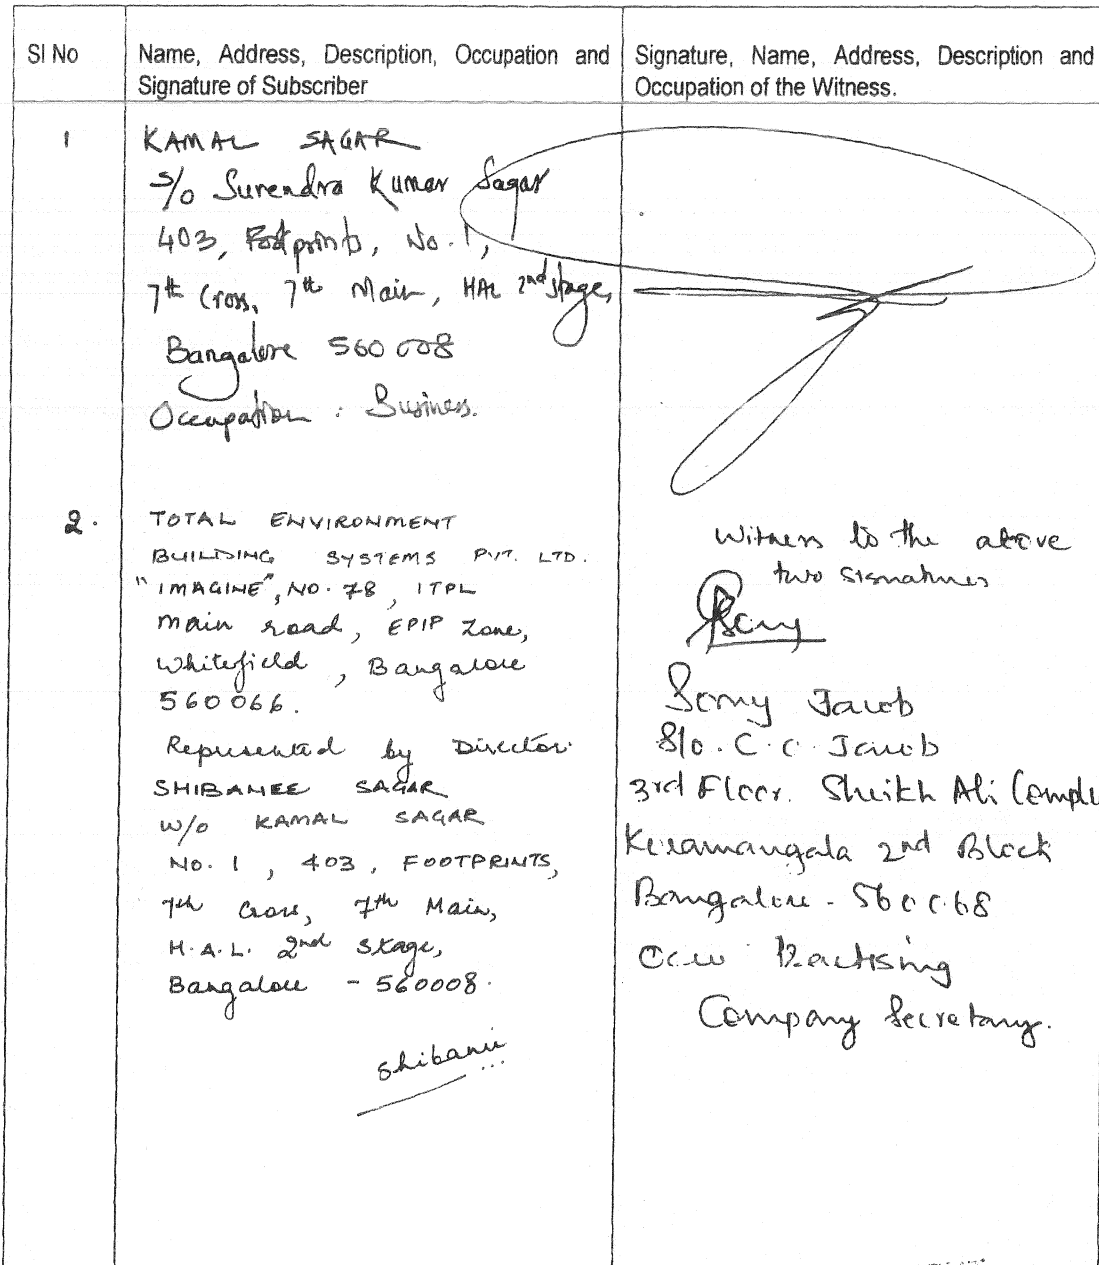 Sl No
Name, Address, Description, Occupation and
Signature of Subscriber
Signature, Name, Address, Description and
Occupation of the Witness.
1
KAMAL SAGAR
S/o Surendra Kumar Sagar
403, Footprints, No. 1,
7th Cross, 7th Main, HAL 2nd Stage,
Bangalore 560 008
Occupation : Business.
2.
TOTAL ENVIRONMENT
BUILDING SYSTEMS PVT. LTD.
"IMAGINE", NO. 78, ITPL
Main road, EPIP Zone,
Whitefield, Bangalore
560066.
Represented by Director:
SHIBANEE SAGAR
W/o KAMAL SAGAR
NO. 1, 403, FOOTPRINTS,
7th Cross, 7th Main,
H.A.L. 2nd Stage,
Bangalore - 560008.
Shibani
Witness to the above
two signatures
Somy Jacob
S/o. C.C. Jacob
3rd Floor. Sheikh Ali Comple
Koramangala 2nd Block
Bangalore - 560068
Practising
Company Secretary.